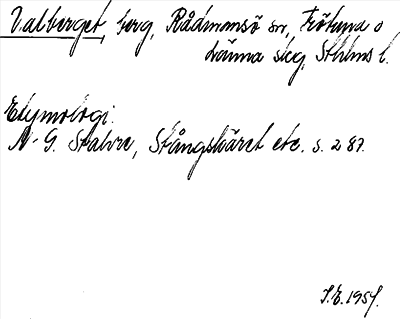 Valberget, berg, Rådmansö sn, Frötuna o
Länna skg, Sthlms l.
Etymologi:
N-G. Stahre, Stångskäret etc. s. 287.
S.E. 1954.